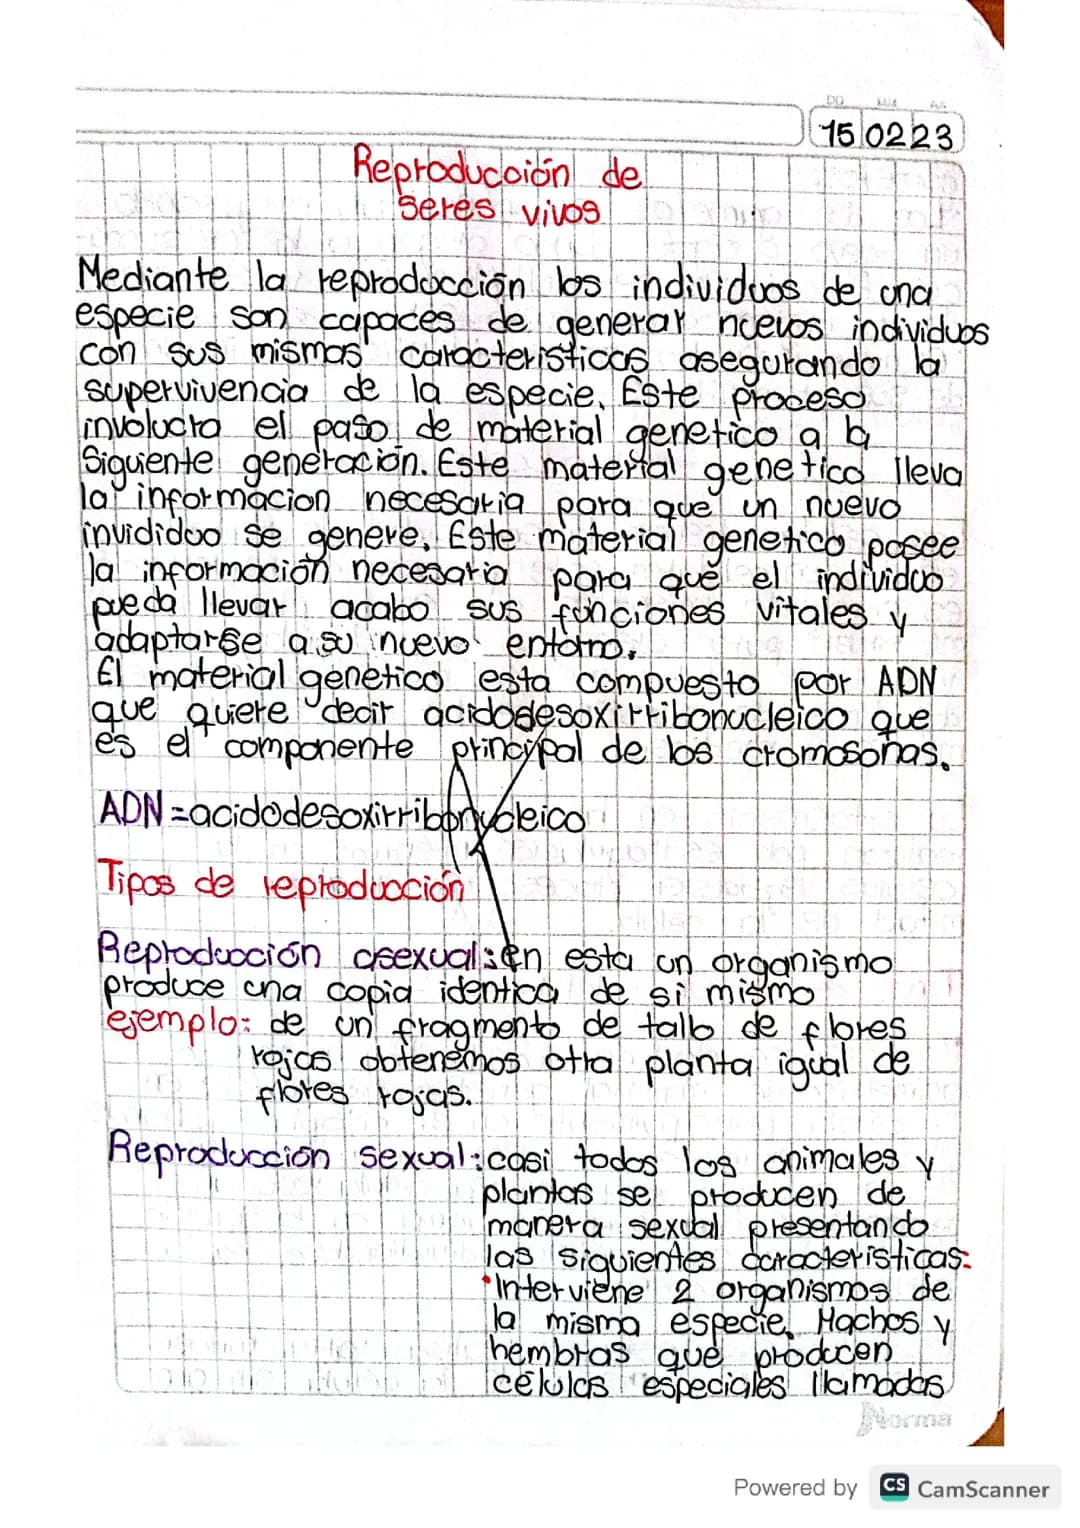 DD MM AA
15 02 23
Reproducción de
seres vivos
Mediante la reproducción los individuos de una
especie son capaces de generar nuevos individuos
con sus mismas caracteristicas asegurando la
supervivencia de la especie. Este proceso
involucra el paso de material genetico a la
siguiente generación. Este material genetico lleva
la informacion necesaria para que un nuevo
invididuo se genere. Este material genetico posee
la información necesaria para que el individuo
pueda llevar acabo sus funciones vitales y
adaptarse a su nuevo entorno.
El material genetico esta compuesto por ADN
que quiere decir acidodesoxirribonucleico que
es el componente principal de los cromosonas.
ADN=acidodesoxirribonucleico
Tipos de reproducción
Reproducción asexual:en esta un organismo
produce una copia identica de si mismo
ejemplo: de un fragmento de tallo de flores
rojas obtenemos otra planta igual de
flores rojas.
Reproducción sexual:casi todos los animales y
plantas se producen de
manera sexual presentando
las siguientes caracteristicas:
•Interviene 2 organismos de
la misma especie. Machos y
hembras que producen
células especiales llamadas
Norma
Powered by CS CamScanner